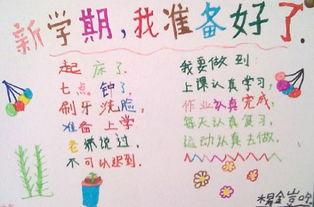 新学期，我准备好了.
起床了.
七点钟了.
刷牙洗脸，
准备上学
老师说过，
不可以迟到.
我要做到:
上课认真学习，
作业认真完成，
每天认真复习，
运动认真去做.